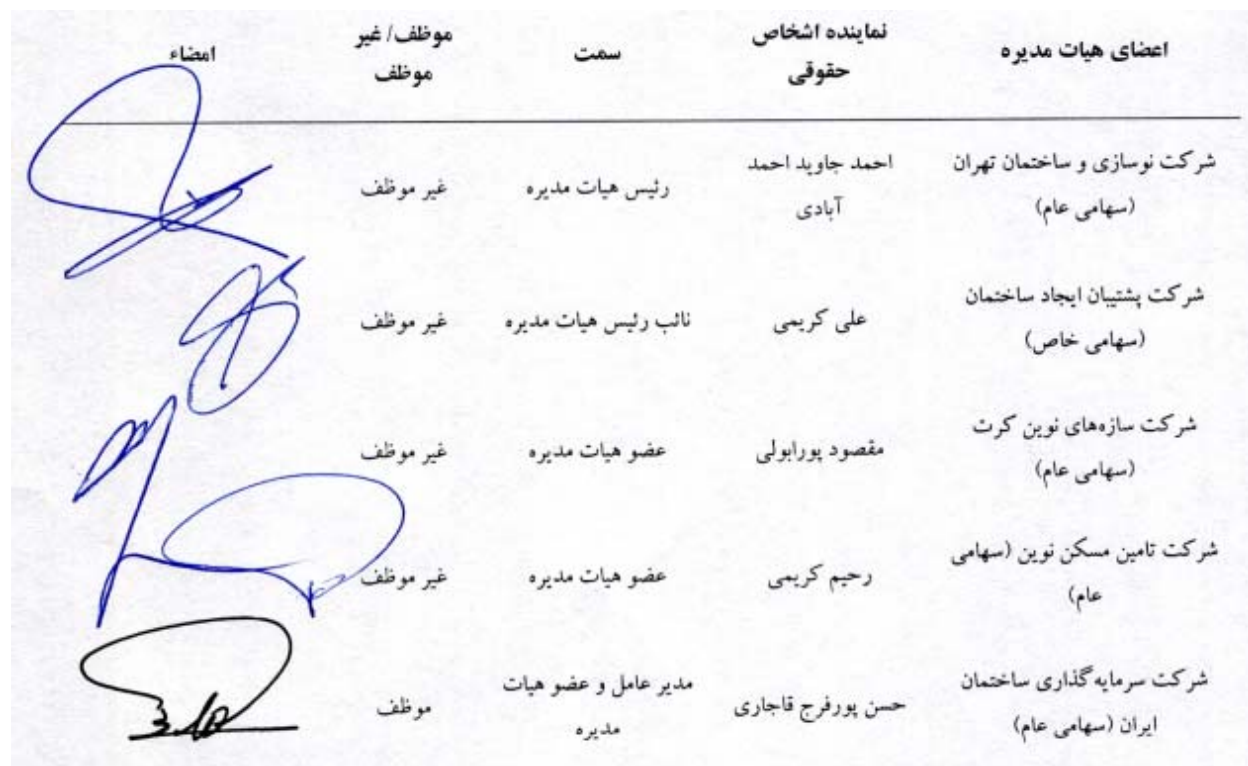 اعضای هیات مدیره
نماینده اشخاص
حقوقی
سمت
موظف/ غیر
موظف
امضاء
شرکت نوسازی و ساختمان تهران
(سهامی عام)
احمد جاوید احمد
آبادی
رئیس هیات مدیره
غیر موظف
شرکت پشتیبان ایجاد ساختمان
(سهامی خاص)
علی کریمی
نائب رئیس هیات مدیره
غیر موظف
شرکت سازه‌های نوین کرت
(سهامی عام)
مقصود پورابولی
عضو هیات مدیره
غیر موظف
شرکت تامین مسکن نوین (سهامی
عام)
رحیم کریمی
عضو هیات مدیره
غیر موظف
شرکت سرمایه‌گذاری ساختمان
ایران (سهامی عام)
حسن پورفرج قاجاری
مدیر عامل و عضو هیات
مدیره
موظف